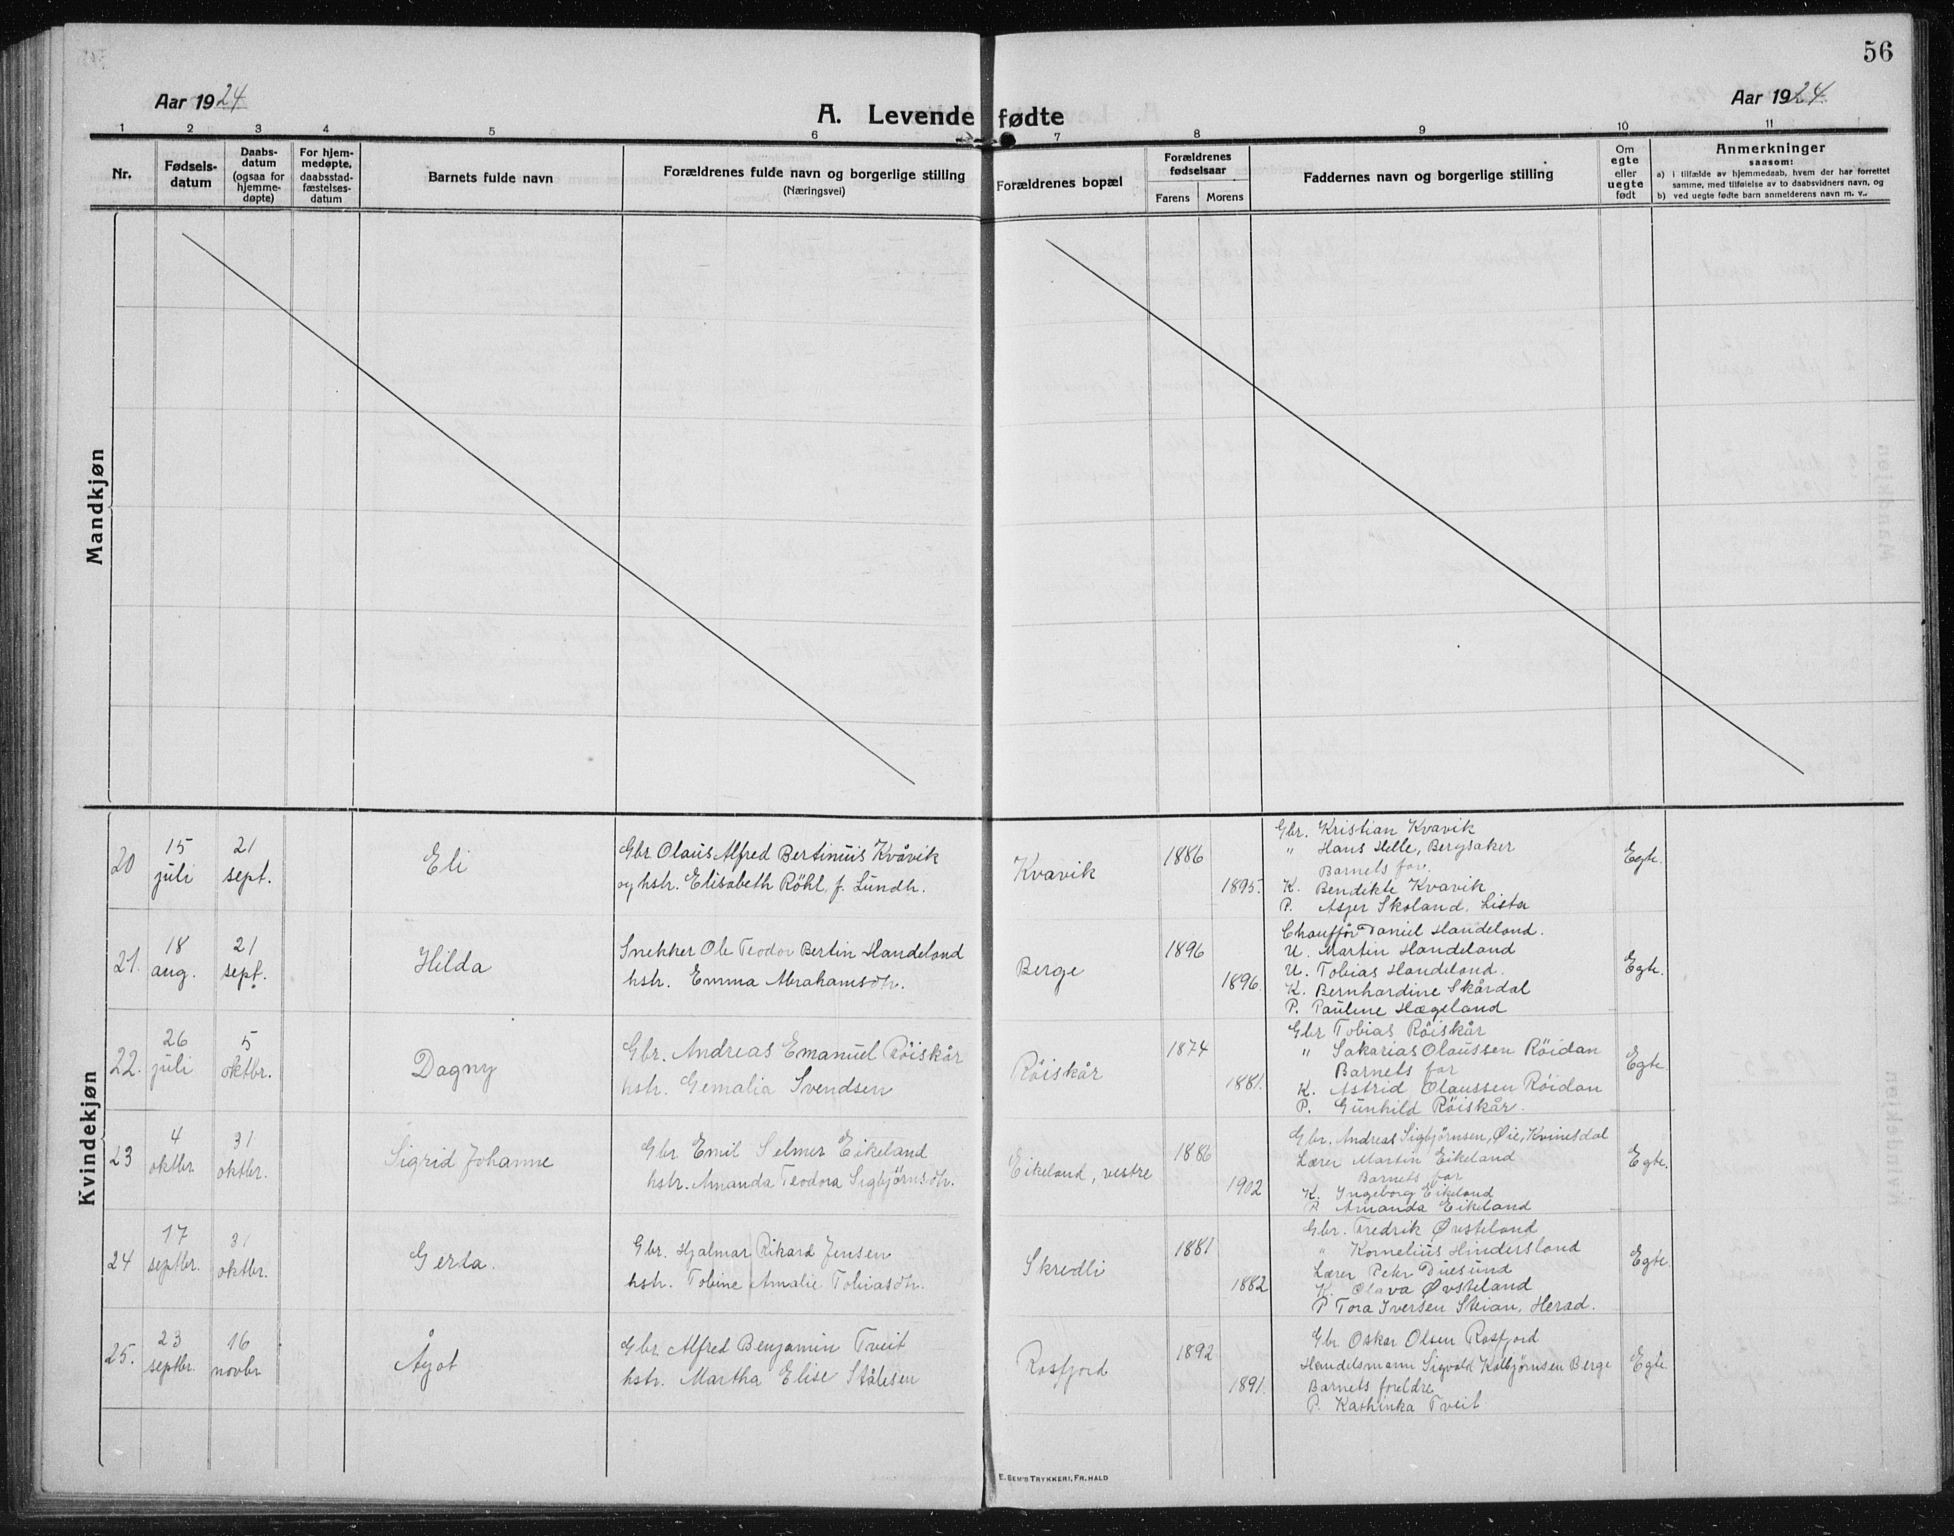 56
Aar 1924
A. Levende fødte
Aar 1924
1 2 3 4 5 6 7 8 9 10 11
Nr.
Fødsels-
datum
Daabs-
datum
(ogsaa for
hjemme-
døpte)
For hjem-
medøpte,
daabsstad-
fæstelses-
datum
Barnets fulde navn
Forældrenes fulde navn og borgerlige stilling
(Næringsvei)
Forældrenes bopæl
Forældrenes
fødselsaar
Farens Morens
Faddernes navn og borgerlige stilling
Om
egte
eller
uegte
født
Anmerkninger
saasom:
a) i tilfælde av hjemmedaab, hvem der har forrettet
samme, med tilføielse av to daabsvidners navn, og
b) ved uegte fødte barn anmelderens navn m. v..
Mandkjøn
Kvindekjøn
20
15
juli
21
sept.
Eli
Gbr. Olaus Alfred Bertinius Kvåvik
og hstr. Elisabeth Röhl, f. Lundh.
Kvavik
1886
1895.
Gbr. Kristian Kvavik
" Hans Helle, Bergsaker
Barnets far
K. Bendikte Kvavik
P. Asjer Skoland, Lista
Egte.
21.
18
aug.
21
sept.
Hilda
Snekker Ole Teodor Bertin Handeland
hstr. Emma Abrahamsdtr.
Berge
1896
1896.
Chauffør Daniel Handeland.
U. Martin Handeland
U. Tobias Handeland.
K. Bernhardine Skårdal
P. Pauline Hægeland
Egte.
22.
26
juli
5
oktbr.
Dagny
Gbr. Andreas Emanuel Röiskår
hstr. Gemalia Svendsen
Röiskår
1874
1881.
Gbr Tobias Röiskår
" Sakarias Olaussen Röidan
Barnets far
K. Astrid Olaussen Röidan
P. Gunhild Röiskår.
Egte
23
4
oktbr.
31
oktbr.
Sigrid Johanne
Gbr Emil Selmer Eikeland
hstr. Amanda Teodora Sigbjörnsdtr.
Eikeland, vestre
1886
1902
Gbr. Andreas Sigbjörnsen, Øie, Kvinesdal
Lærer Martin Eikeland
Barnets far
K. Ingeborg Eikeland
P. Amanda Eikeland
Egte.
24
17
septbr.
31
oktbr.
Gerda.
Gbr. Hjalmar Rikard Jensen
hstr. Tobine Amalie Tobiasdtr.
Skredli
1881
1882
Gbr. Fredrik Øvsteland
" Kornelius Hindersland
Lærer Peter Duesund
K. Olava Øvsteland
P Tora Iversen Steian, Herad.
Egte
25.
23
septbr.
16
novbr
Ågot
Gbr Alfred Benjamin Tveit
hstr. Martha Elise Stålesen
Rosfjord
1892
1891.
Gbr. Oskar Olsen Rosfjord
Handelsmann Sigvald Kolbjørnsen Berge
Barnets foreldre
P. Kathinka Tveit
Egte
E. SEM'S TRYKKERI, FR.HALD